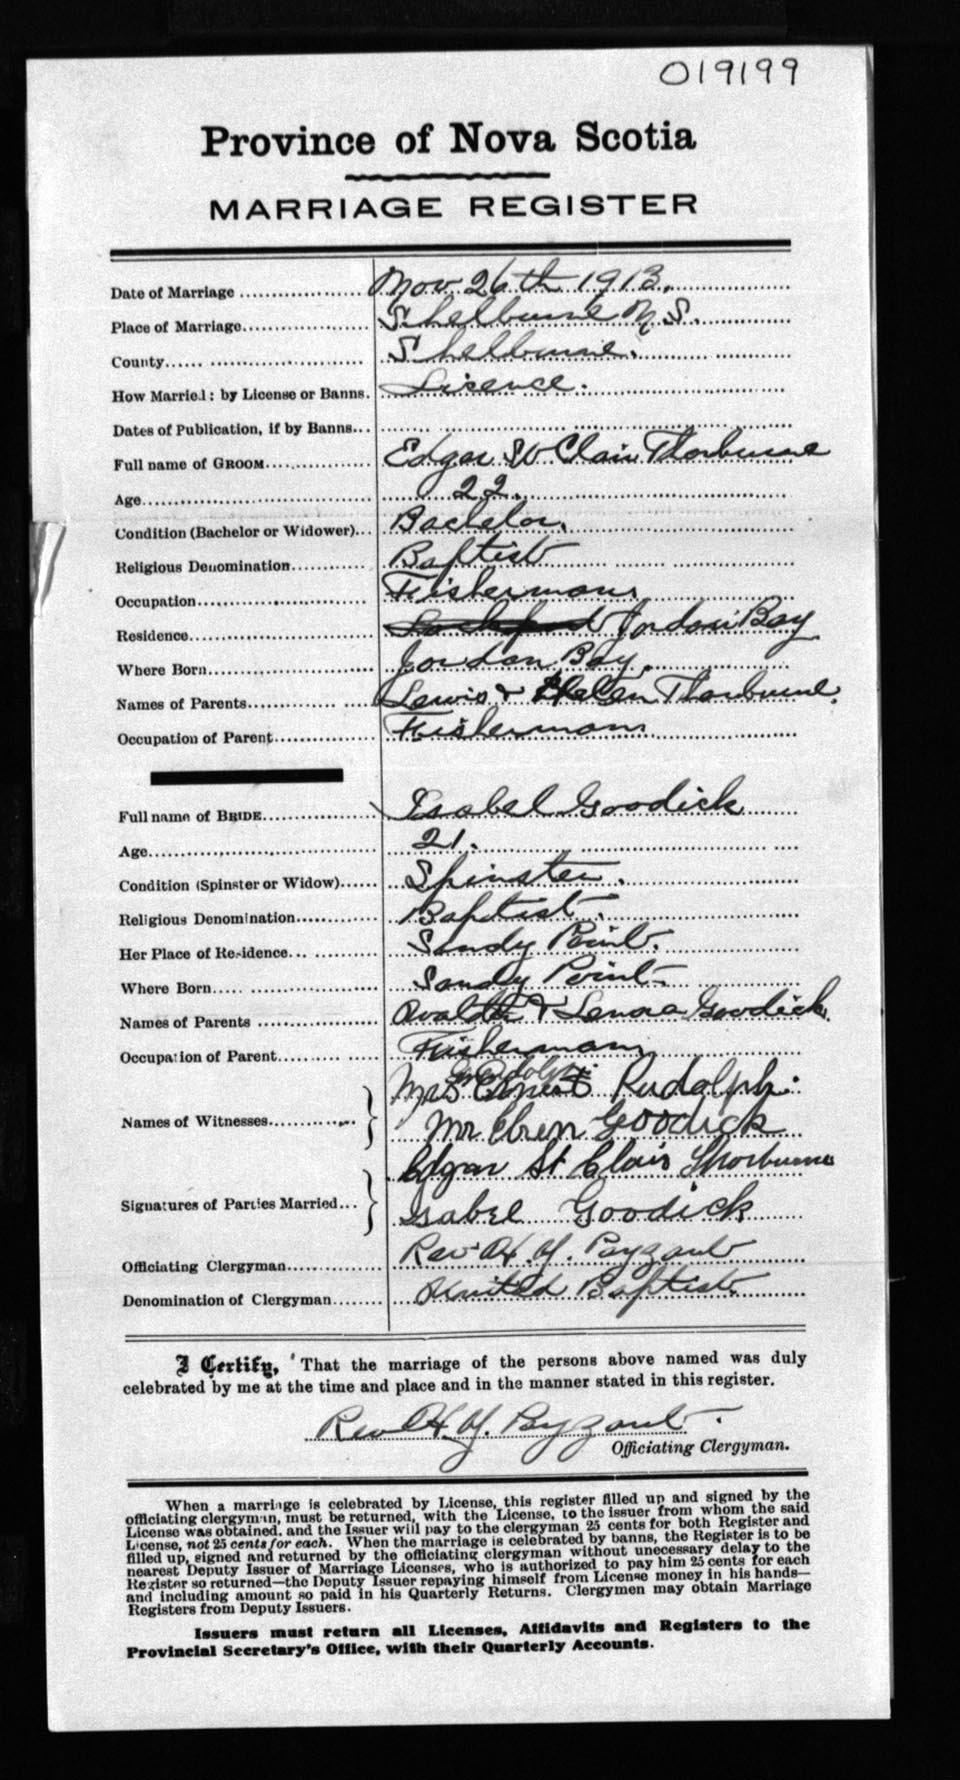 019199
Province of Nova Scotia
MARRIAGE REGISTER
Date of Marriage Nov 26th 1913.
Place of Marriage Shelburne N.S.
County Shelburne.
How Married: by License or Banns. Lisence.
Dates of Publication, if by Banns
Full name of GROOM Edgar St Clair Thorburne
Age 22.
Condition (Bachelor or Widower) Bachelor.
Religious Denomination Baptist
Occupation Fisherman
Residence Jordan Bay
Where Born Jordan Bay.
Names of Parents Lewis & Helen Thorburne.
Occupation of Parent Fisherman
Full name of BRIDE Isabel Goodick
Age 21.
Condition (Spinster or Widow) Spinster.
Religious Denomination Baptist.
Her Place of Residence Sandy Point.
Where Born Sandy Point
Names of Parents & Lenora Goodick.
Occupation of Parent Fisherman
Mrs Rudolph.
Names of Witnesses Mr Eben Goodick
Edgar St Clair Thorburne
Signatures of Parties Married Isabel Goodick
Officiating Clergyman Rev H. Y. Payzant
Denomination of Clergyman United Baptist.
I Certify, That the marriage of the persons above named was duly
celebrated by me at the time and place and in the manner stated in this register.
Rev H. Y. Payzant.
Officiating Clergyman.
When a marriage is celebrated by License, this register filled up and signed by the
officiating clergyman, must be returned, with the License, to the issuer from whom the said
License was obtained, and the Issuer will pay to the clergyman 25 cents for both Register and
License, not 25 cents for each. When the marriage is celebrated by banns, the Register is to be
filled up, signed and returned by the officiating clergyman without unnecessary delay to the
nearest Deputy Issuer of Marriage Licenses, who is authorized to pay him 25 cents for each
Register so returned—the Deputy Issuer repaying himself from License money in his hands—
and including amount so paid in his Quarterly Returns. Clergymen may obtain Marriage
Registers from Deputy Issuers.
Issuers must return all Licenses, Affidavits and Registers to the
Provincial Secretary's Office, with their Quarterly Accounts.